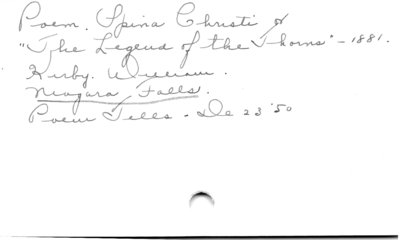 Poem. Spina Christi or
"The Legend of the Thorns" - 1881.
Kirby. William.
Niagara Falls.
Poem Tells - De 23 '50